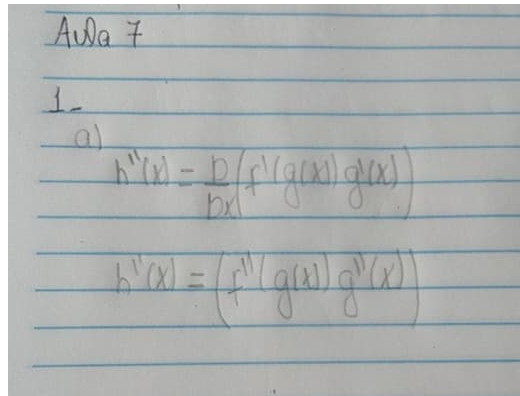 Aula 7
1-
a)
h''(x) = D/Dx (f'(g(x)) g'(x))
h''(x) = (f''(g(x)) g''(x))